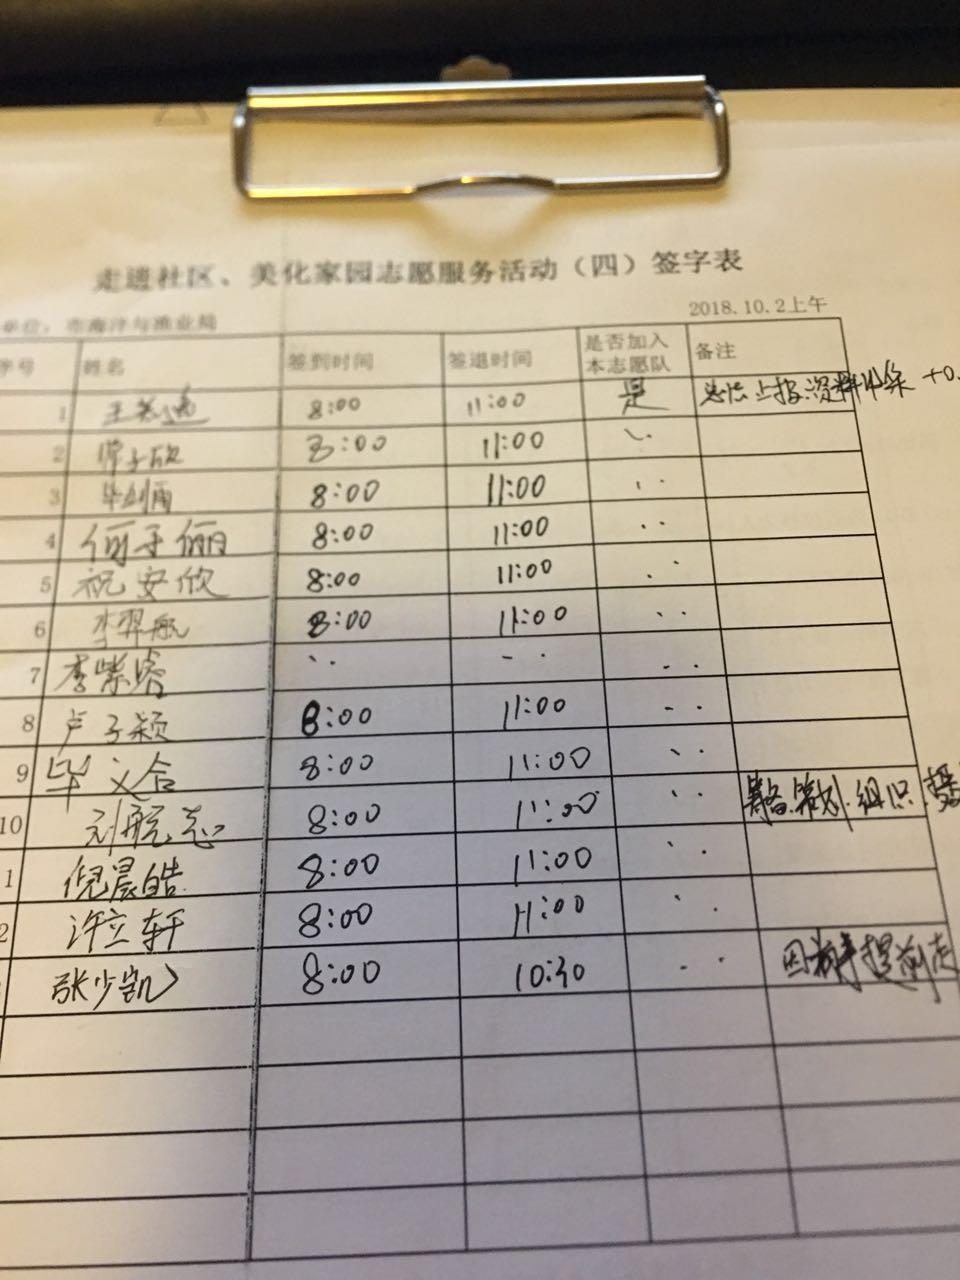 走进社区、美化家园志愿服务活动（四）签字表
单位：市海洋与渔业局 2018.10.2上午
序号 姓名 签到时间 签退时间 是否加入本志愿队 备注
1 8:00 11:00 是 上报资料 +0.
2 8:00 11:00 〃
3 8:00 11:00 〃
4 何子俪 8:00 11:00 〃
5 祝安欣 8:00 11:00 〃
6 李羿航 8:00 11:00 〃
7 李紫睿 〃 〃 〃
8 卢子颖 8:00 11:00 〃
9 毕文合 8:00 11:00 〃
10 刘航志 8:00 11:00 〃 筹备.策划.组织.
1 倪晨皓 8:00 11:00 〃
2 许立轩 8:00 11:00 〃
张少凯 8:00 10:30 〃 因有事提前走